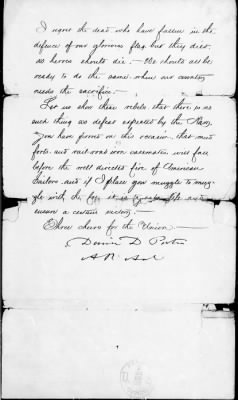 I regret the dead who have fallen in the
defence of our glorious flag but they died
as heroes should die. — We should all be
ready to do the same when our country
needs the sacrifice. —
Let us show these rebels that there is no
such thing as defeat expected by the
You have proved on this occasion, that mud
forts and rail-road iron casemates will fall
before the well directed fire of American
Sailors, and if I place you muzzle to muz-
zle with the
a certain victory. —
Three cheers for the Union. —
David D Porter
A R Ad